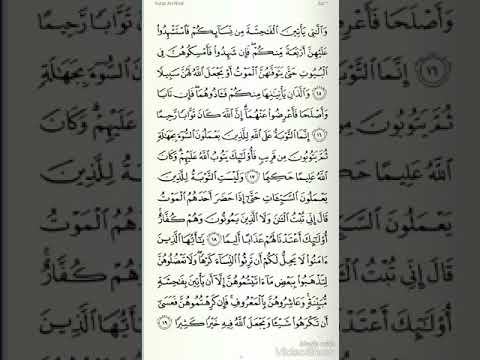 وَٱلَّـٰتِى يَأْتِينَ ٱلْفَـٰحِشَةَ مِن نِّسَآئِكُمْ فَٱسْتَشْهِدُوا۟
عَلَيْهِنَّ أَرْبَعَةً مِّنكُمْ فَإِن شَهِدُوا۟ فَأَمْسِكُوهُنَّ فِى
ٱلْبُيُوتِ حَتَّىٰ يَتَوَفَّىٰهُنَّ ٱلْمَوْتُ أَوْ يَجْعَلَ ٱللَّهُ لَهُنَّ سَبِيلًا
١٥ وَٱلَّذَانِ يَأْتِيَـٰنِهَا مِنكُمْ فَـَٔاذُوهُمَا فَإِن تَابَا
وَأَصْلَحَا فَأَعْرِضُوا۟ عَنْهُمَآ إِنَّ ٱللَّهَ كَانَ تَوَّابًا رَّحِيمًا
١٦ إِنَّمَا ٱلتَّوْبَةُ عَلَى ٱللَّهِ لِلَّذِينَ يَعْمَلُونَ ٱلسُّوٓءَ بِجَهَـٰلَةٍ
ثُمَّ يَتُوبُونَ مِن قَرِيبٍ فَأُو۟لَـٰٓئِكَ يَتُوبُ ٱللَّهُ عَلَيْهِمْ وَكَانَ
ٱللَّهُ عَلِيمًا حَكِيمًا ١٧ وَلَيْسَتِ ٱلتَّوْبَةُ لِلَّذِينَ
يَعْمَلُونَ ٱلسَّيِّـَٔاتِ حَتَّىٰٓ إِذَا حَضَرَ أَحَدَهُمُ ٱلْمَوْتُ
قَالَ إِنِّى تُبْتُ ٱلْـَٔـٰنَ وَلَا ٱلَّذِينَ يَمُوتُونَ وَهُمْ كُفَّارٌ
أُو۟لَـٰٓئِكَ أَعْتَدْنَا لَهُمْ عَذَابًا أَلِيمًا ١٨ يَـٰٓأَيُّهَا ٱلَّذِينَ
ءَامَنُوا۟ لَا يَحِلُّ لَكُمْ أَن تَرِثُوا۟ ٱلنِّسَآءَ كَرْهًا وَلَا تَعْضُلُوهُنَّ
لِتَذْهَبُوا۟ بِبَعْضِ مَآ ءَاتَيْتُمُوهُنَّ إِلَّآ أَن يَأْتِينَ بِفَـٰحِشَةٍ
مُّبَيِّنَةٍ وَعَاشِرُوهُنَّ بِٱلْمَعْرُوفِ فَإِن كَرِهْتُمُوهُنَّ فَعَسَىٰٓ
أَن تَكْرَهُوا۟ شَيْـًٔا وَيَجْعَلَ ٱللَّهُ فِيهِ خَيْرًا كَثِيرًا ١٩
Made with
VideoShow